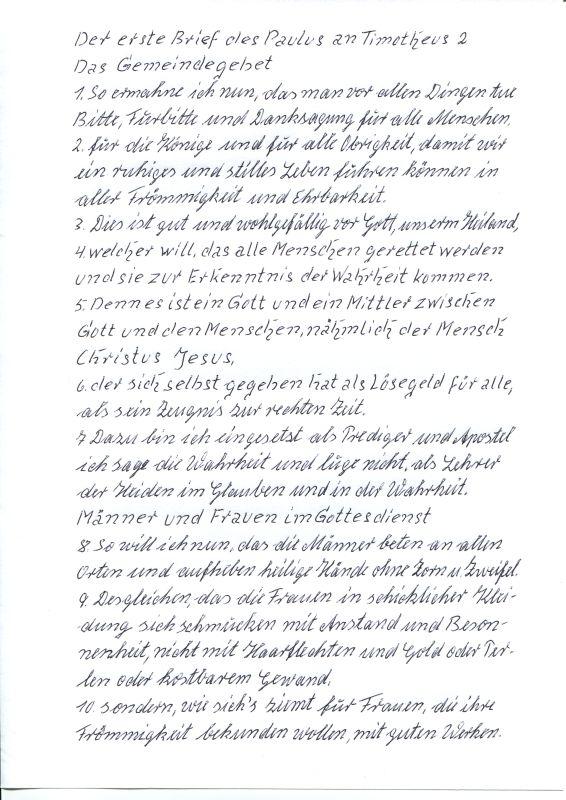 Der erste Brief des Paulus an Timotheus 2
Das Gemeindegebet
1. So ermahne ich nun, das man vor allen Dingen tue
Bitte, Fürbitte und Danksagung für alle Menschen
2. für die Könige und für alle Obrigkeit, damit wir
ein ruhiges und stilles Leben führen können in
aller Frömmigkeit und Ehrbarkeit.
3. Dies ist gut und wohlgefällig vor Gott, unserm Heiland,
4. welcher will, das alle Menschen gerettet werden
und sie zur Erkenntnis der Wahrheit kommen.
5. Denn es ist ein Gott und ein Mittler zwischen
Gott und den Menschen, nähmlich der Mensch
Christus Jesus,
6. der sich selbst gegeben hat als Lösegeld für alle,
als sein Zeugnis zur rechten Zeit.
7 Dazu bin ich eingesetzt als Prediger und Apostel
ich sage die Wahrheit und lüge nicht, als Lehrer
der Heiden im Glauben und in der Wahrheit.
Männer und Frauen im Gottesdienst
8. So will ich nun, das die Männer beten an allen
Orten und aufheben heilige Hände ohne Zorn u. Zweifel.
9. Desgleichen, das die Frauen in schicklicher Klei-
dung sich schmücken mit Anstand und Beson-
nenheit, nicht mit Haarflechten und Gold oder Per-
len oder kostbarem Gewand,
10. sondern, wie sich's ziemt für Frauen, die ihre
Frömmigkeit bekunden wollen, mit guten Werken.